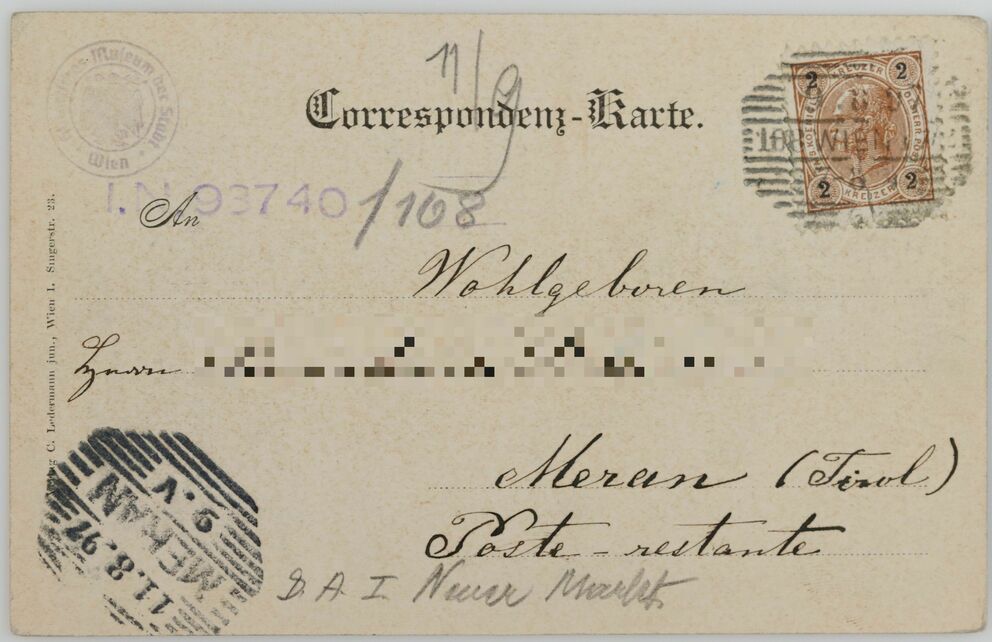 11/9
Correspondenz-Karte.
Museum der Stadt
Wien
2 KREUZER 2
2 KREUZER 2
108 WIEN
I.N. 93740/108
An
Wohlgeboren
Herrn
Meran (Tirol)
Poste-restante
C. Ledermann jun., Wien I. Singerstr. 23.
MERAN
11.8.97
9.V
D. A. I Neuer Markt